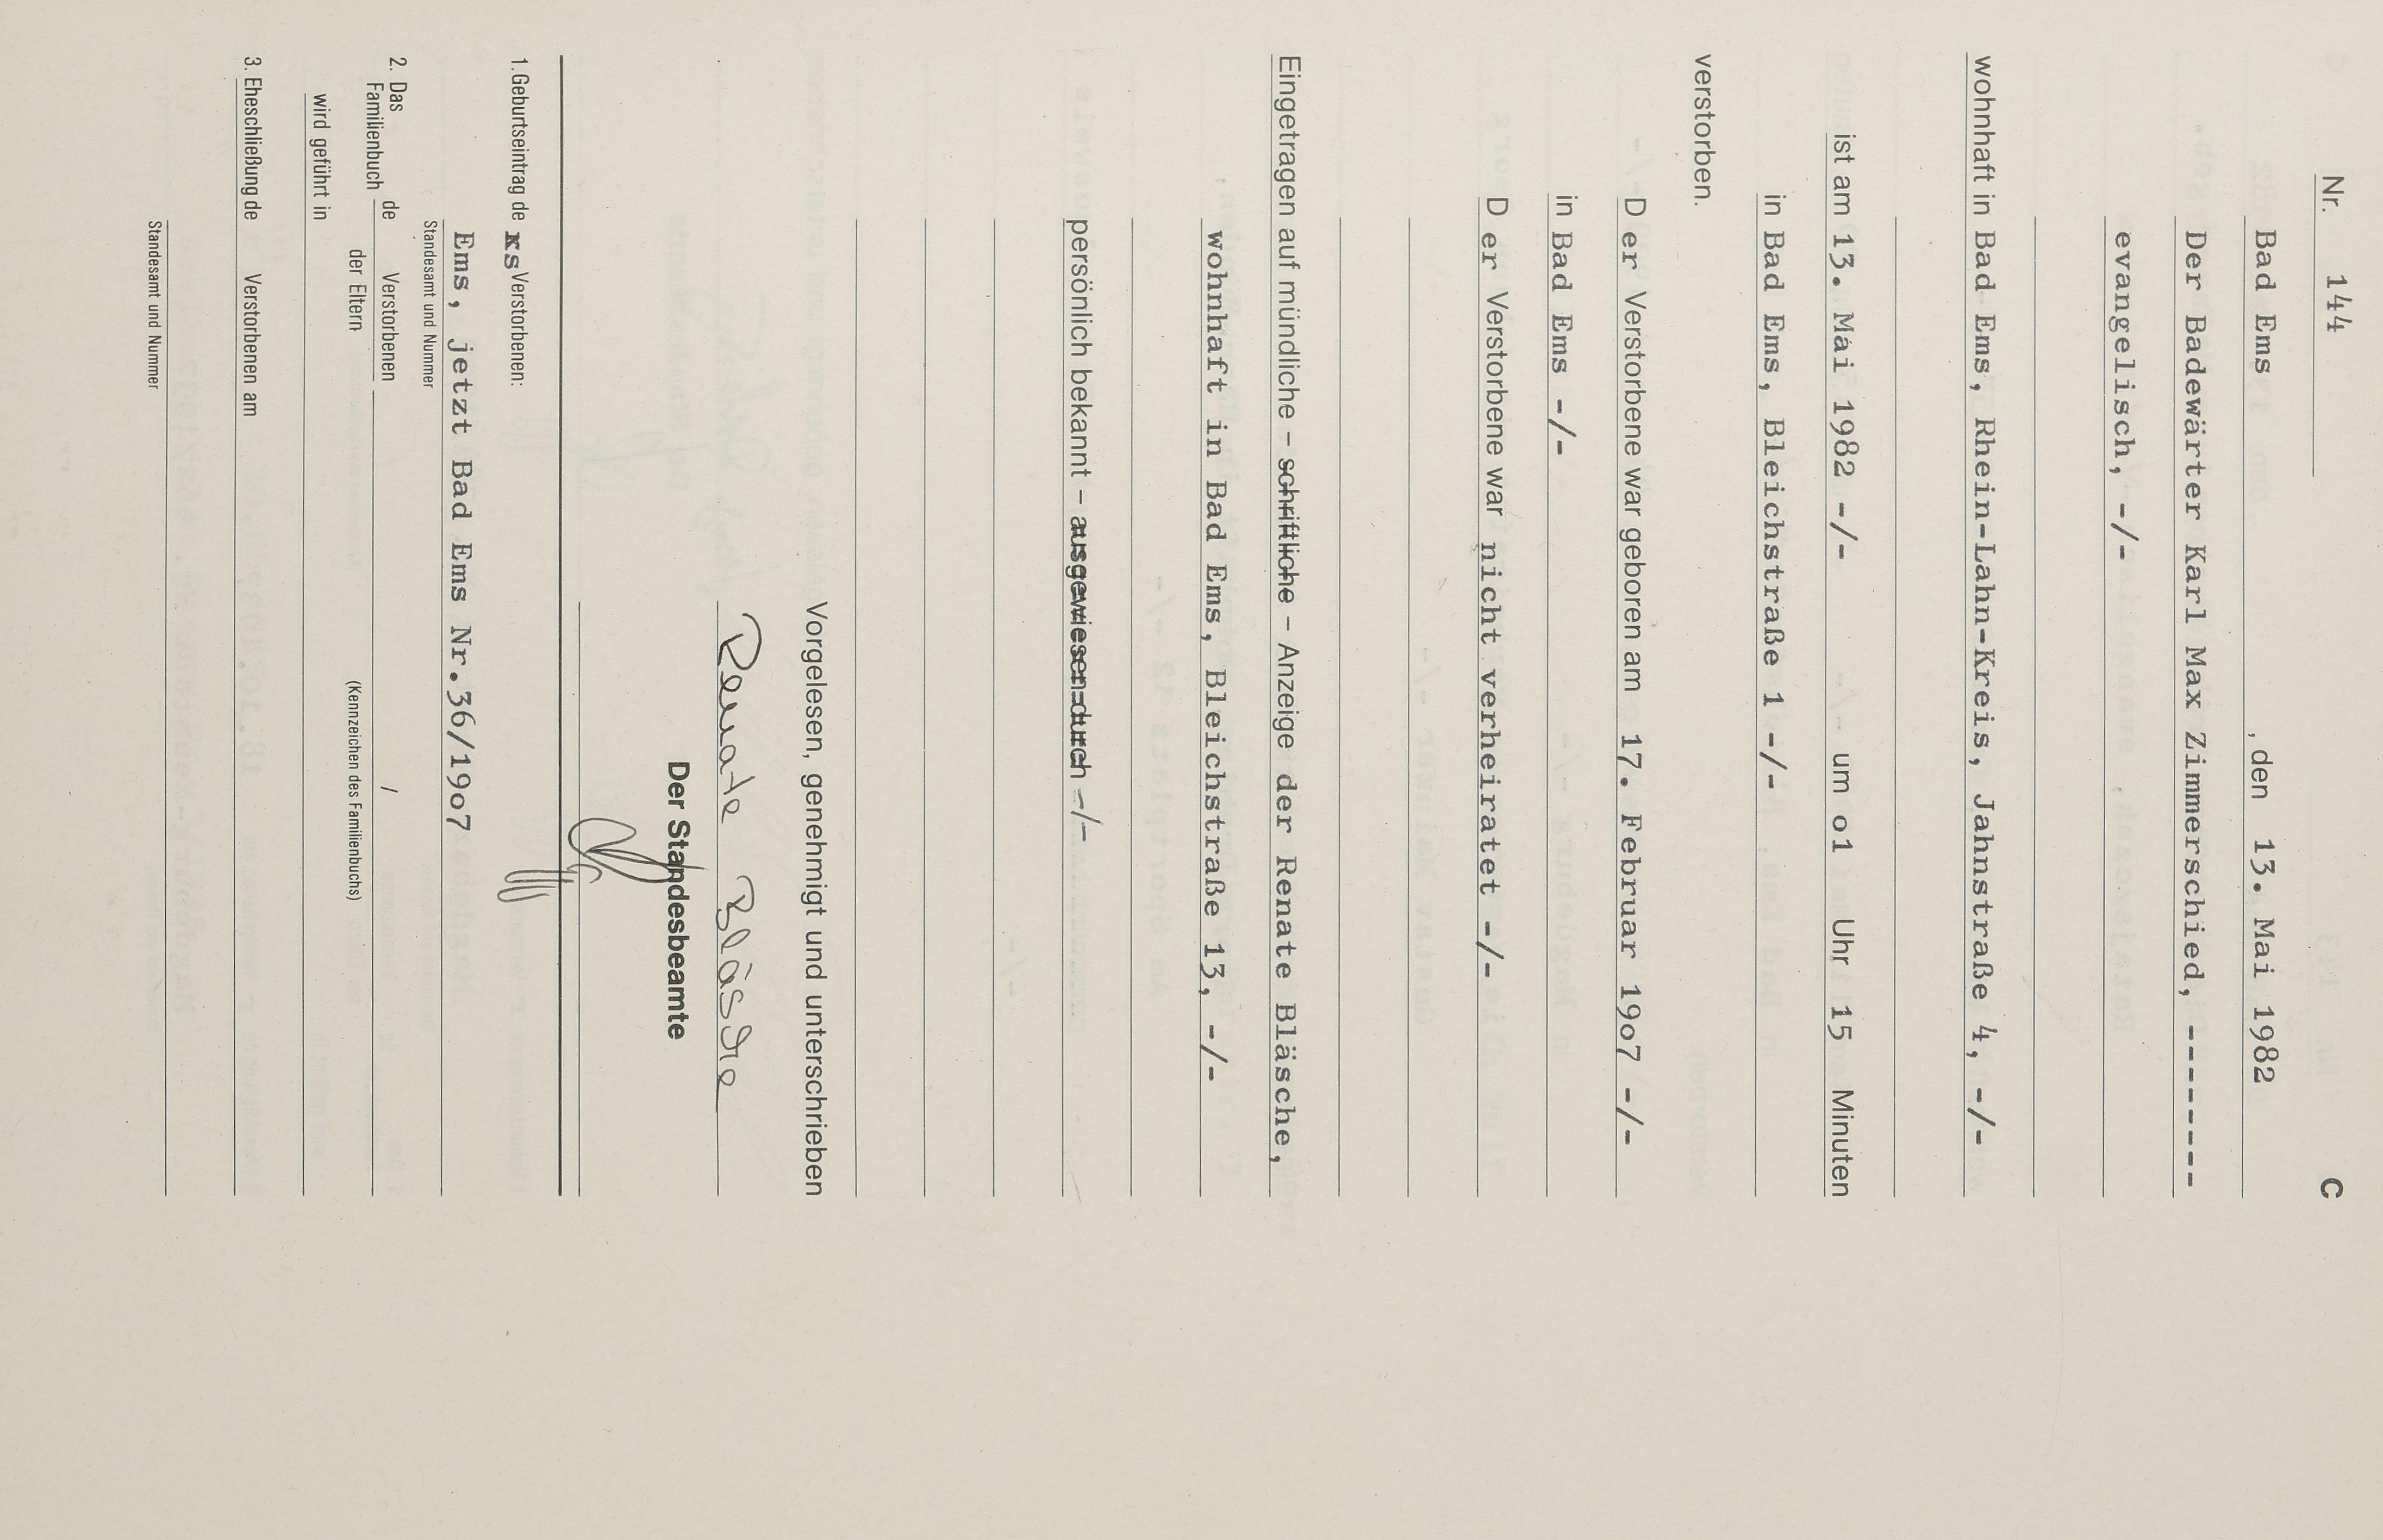 Nr. 144 C
Bad Ems , den 13. Mai 1982
Der Badewärter Karl Max Zimmerschied, -------
evangelisch, -/-
wohnhaft in Bad Ems, Rhein-Lahn-Kreis, Jahnstraße 4, -/-
ist am 13. Mai 1982 -/- um o1 Uhr 15 Minuten
in Bad Ems, Bleichstraße 1 -/-
verstorben.
D er Verstorbene war geboren am 17. Februar 19o7 -/-
in Bad Ems -/-
D er Verstorbene war nicht verheiratet -/-
Eingetragen auf mündliche – schriftliche – Anzeige der Renate Bläsche,
wohnhaft in Bad Ems, Bleichstraße 13, -/-
persönlich bekannt – ausgewiesen durch -/-
Vorgelesen, genehmigt und unterschrieben
Renate Bläsche
Der Standesbeamte
1. Geburtseintrag de s Verstorbenen:
Ems, jetzt Bad Ems Nr.36/19o7
Standesamt und Nummer
2. Das Familienbuch de Verstorbenen /
der Eltern (Kennzeichen des Familienbuchs)
wird geführt in
3. Eheschließung de Verstorbenen am
Standesamt und Nummer